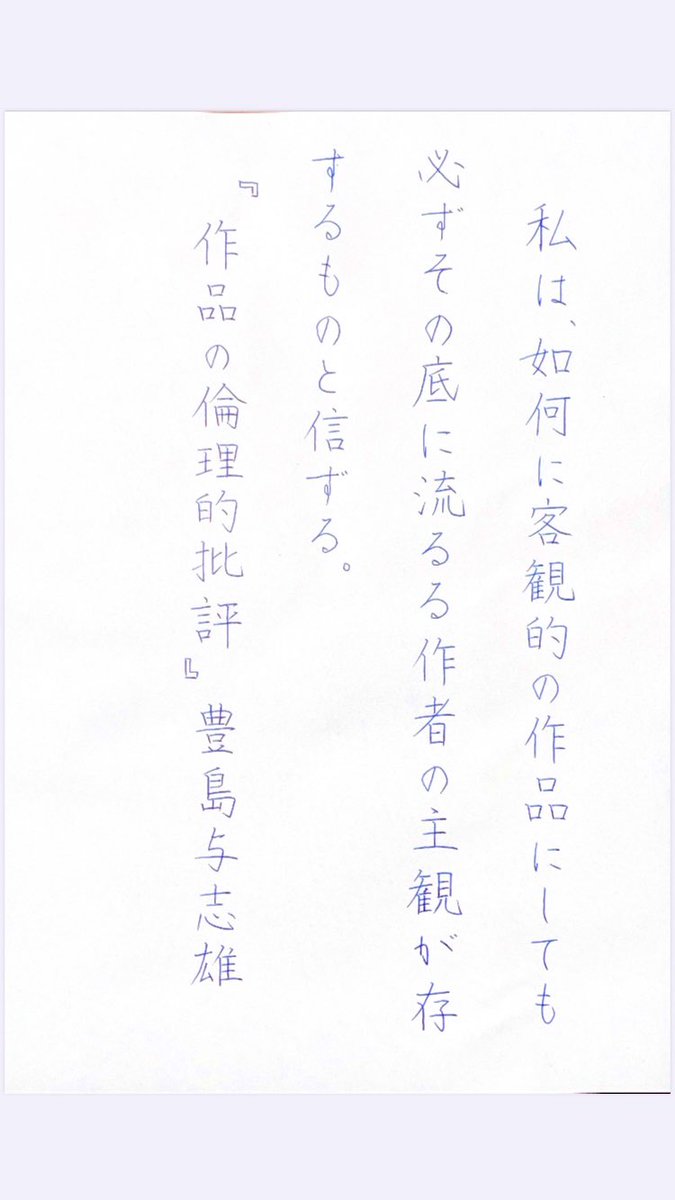 私は、如何に客観的の作品にしても
必ずその底に流るる作者の主観が存
するものと信ずる。
『作品の倫理的批評』豊島与志雄